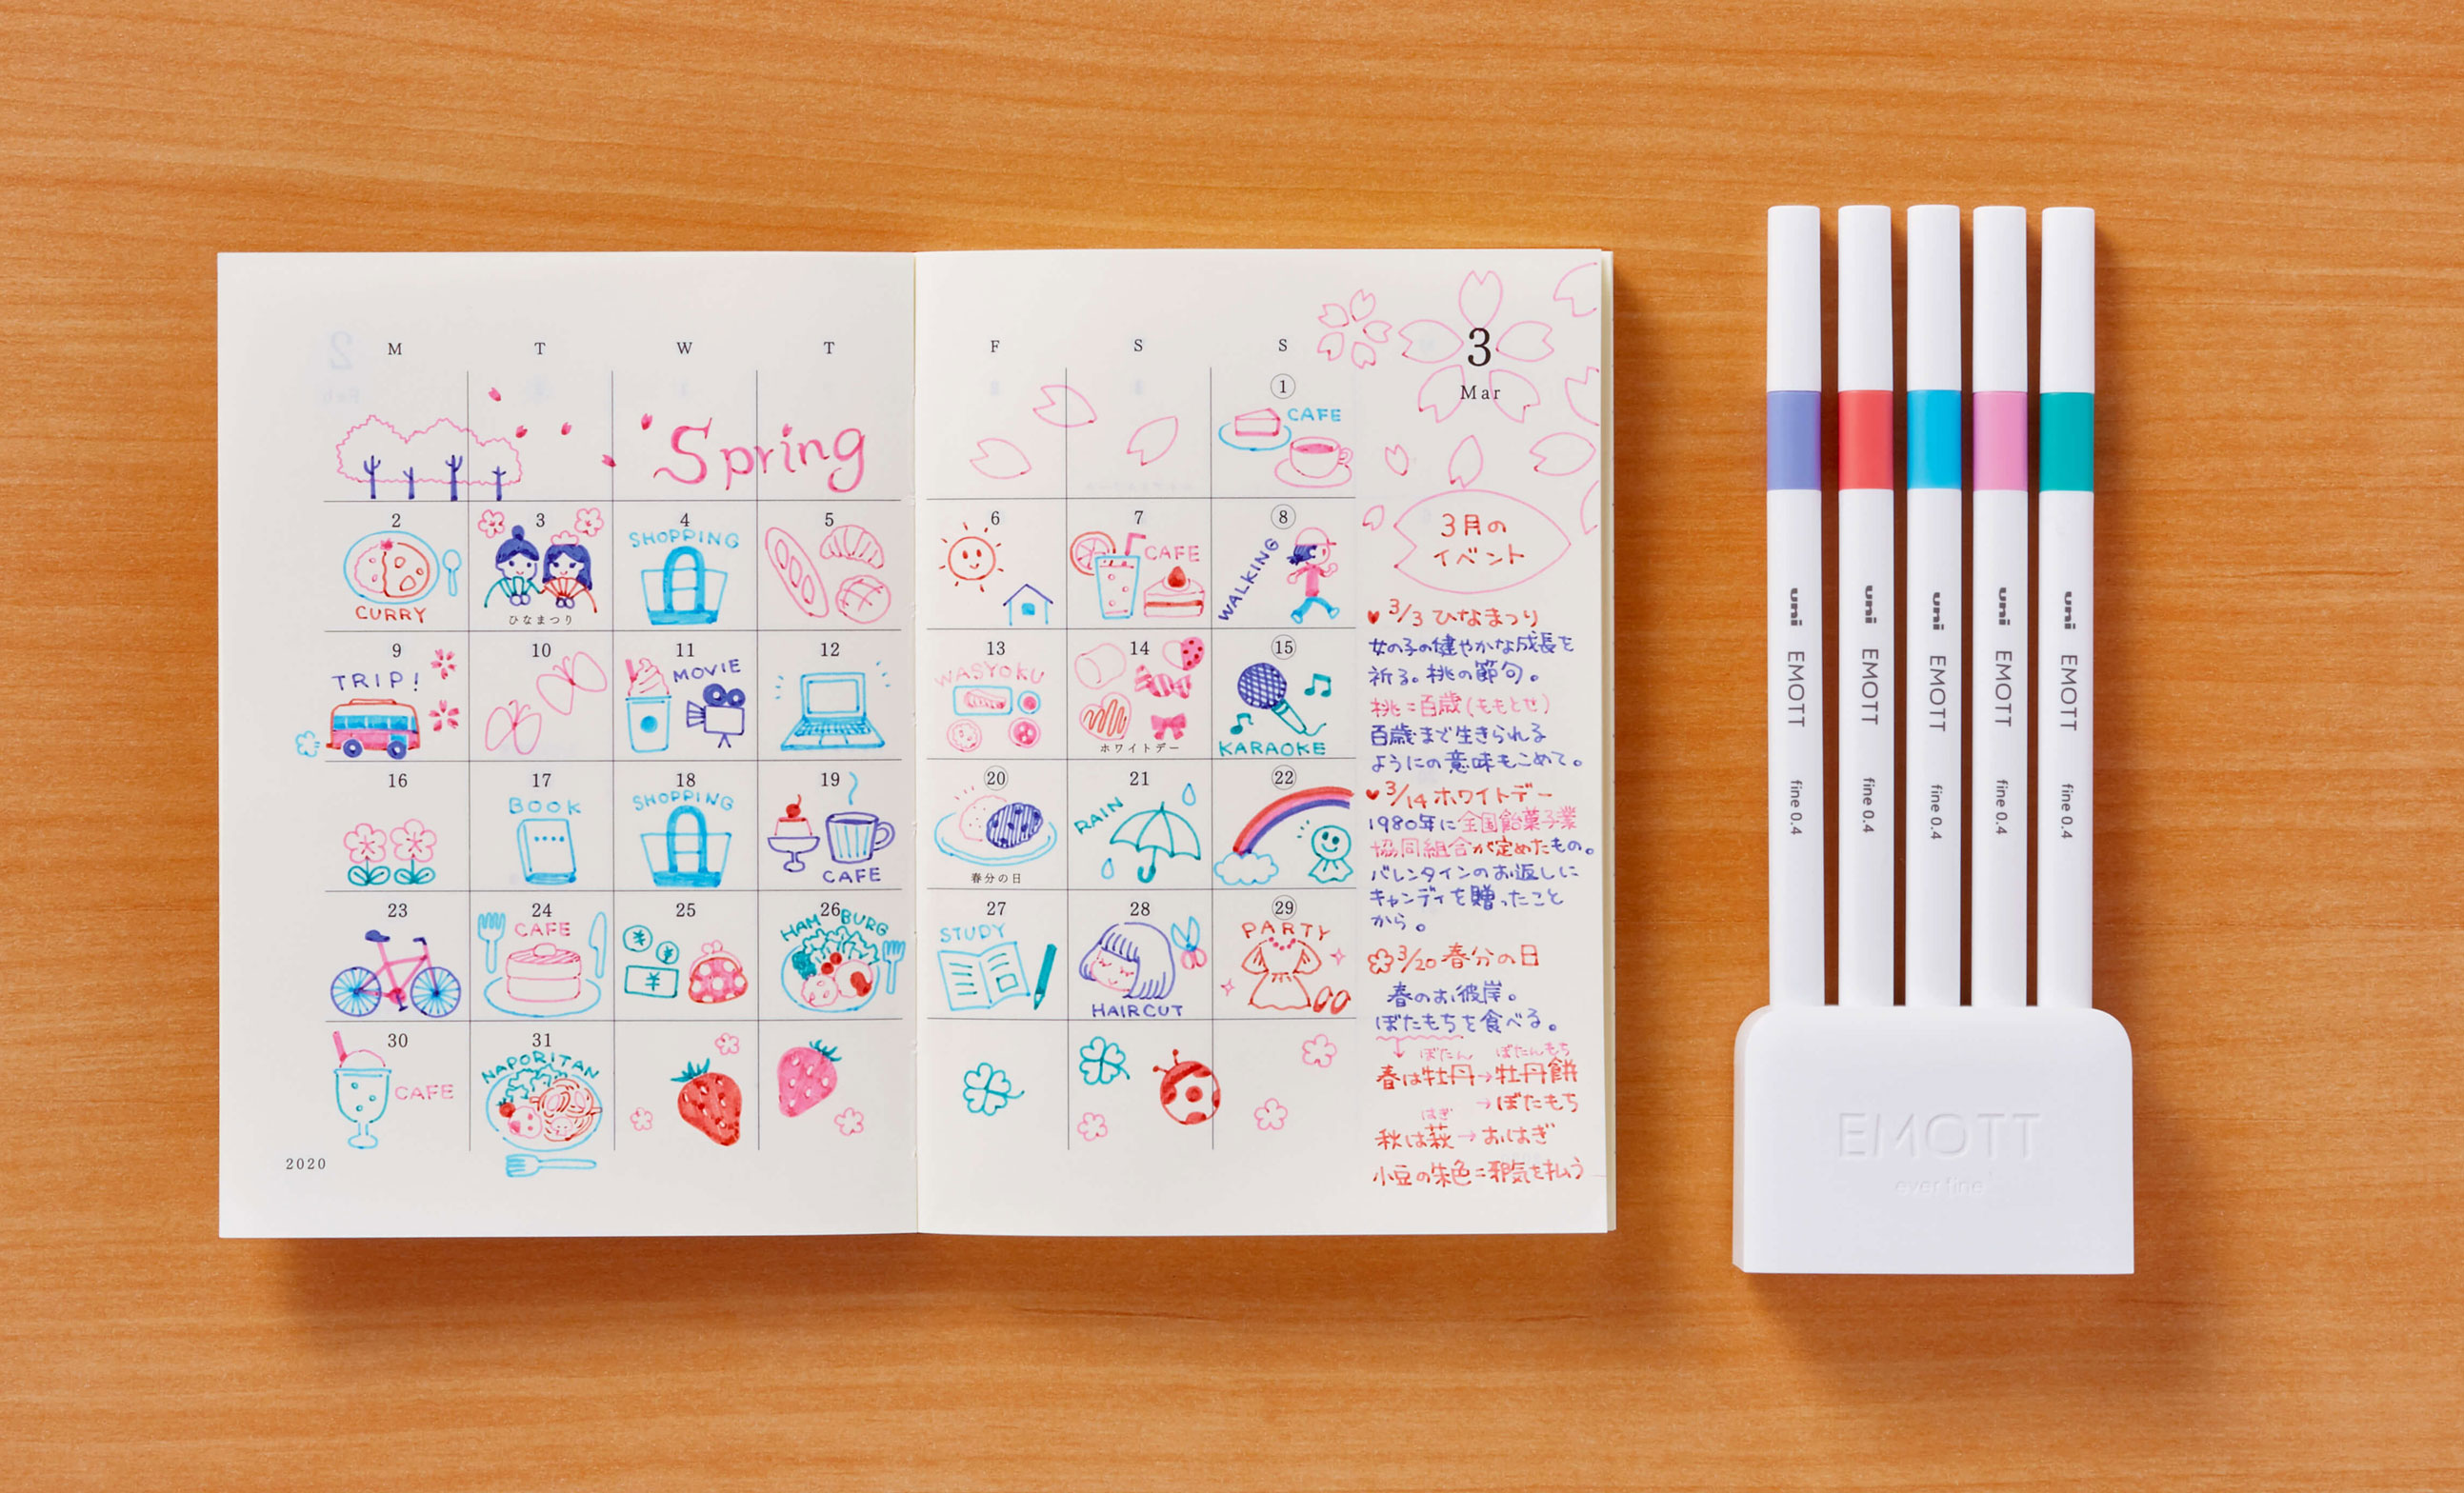 M T W T
Spring
2 3 4 5
SHOPPING
CURRY
ひなまつり
9 10 11 12
TRIP!
MOVIE
16 17 18 19
BOOK
SHOPPING
CAFE
23 24 25 26
CAFE
HAMBURG
30 31
CAFE
NAPORITAN
2020
F S S
1
CAFE
6 7 8
CAFE
WALKING
13 14 15
WASYOKU
ホワイトデー
KARAOKE
20 21 22
RAIN
春分の日
27 28 29
STUDY
HAIRCUT
PARTY
3
Mar
3月の
イベント
3/3 ひなまつり
女の子の健やかな成長を
祈る。桃の節句。
桃=百歳(ももとせ)
百歳まで生きられる
ようにの意味もこめて。
3/14 ホワイトデー
1980年に全国飴菓子業
協同組合が定めたもの。
バレンタインのお返しに
キャンディを贈ったこと
から。
3/20 春分の日
春のお彼岸。
ぼたもちを食べる。
ぼたん ぼたんもち
春は牡丹→牡丹餅
→ぼたもち
はぎ
秋は萩→おはぎ
小豆の朱色=邪気を払う
uni EMOTT fine 0.4
uni EMOTT fine 0.4
uni EMOTT fine 0.4
uni EMOTT fine 0.4
uni EMOTT fine 0.4
EMOTT
ever fine